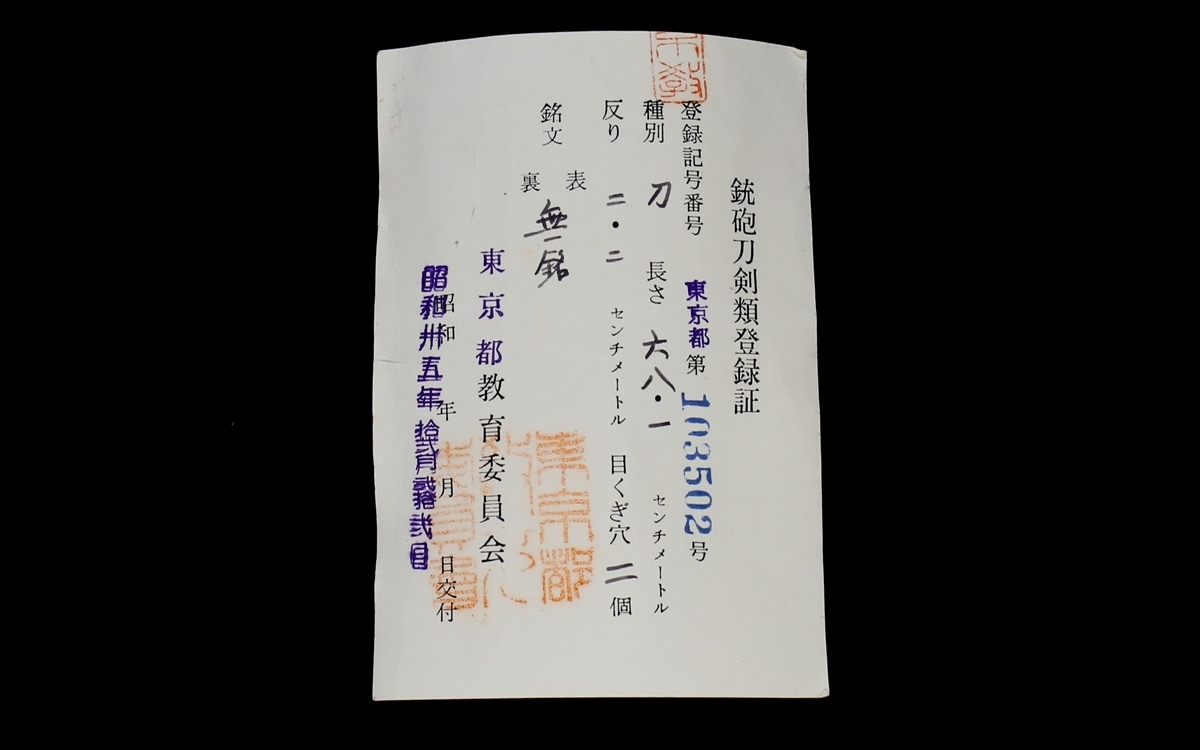 銃砲刀剣類登録証
登録記号番号 東京都 第103502号
種別 刀 長さ 六八・一 センチメートル
反り 二・二 センチメートル 目くぎ穴 二 個
銘文
表
裏
無銘
東京都教育委員会
昭和 年 月 日交付
昭和卅五年拾弐月弐拾弐日